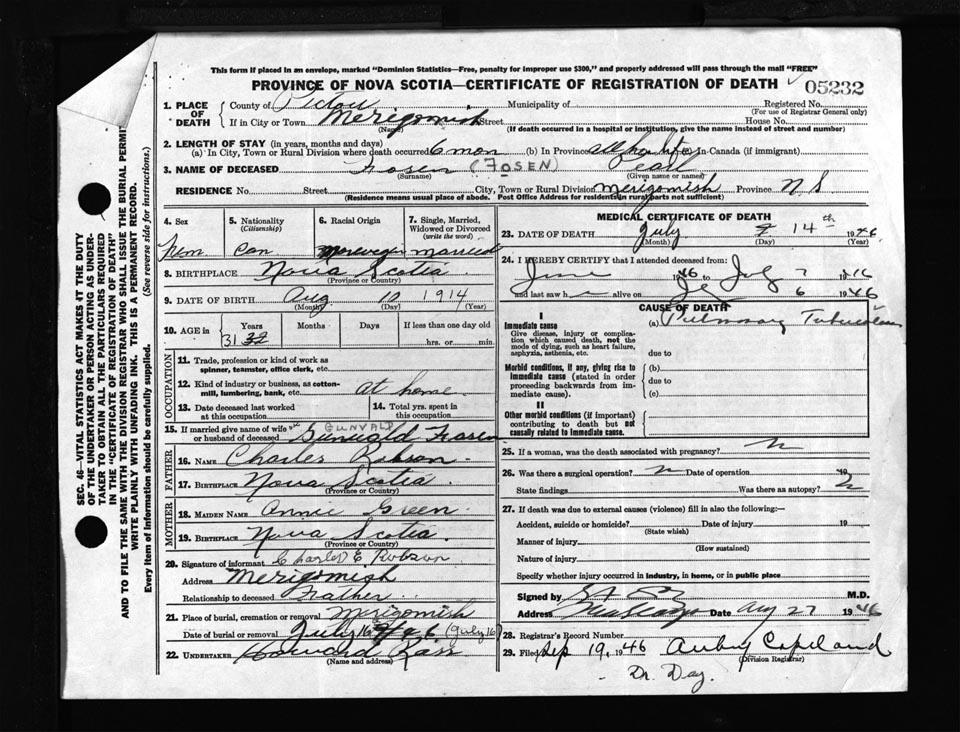 This form if placed in an envelope, marked "Dominion Statistics—Free, penalty for improper use $300," and properly addressed will pass through the mail "FREE"
PROVINCE OF NOVA SCOTIA—CERTIFICATE OF REGISTRATION OF DEATH
05232
1. PLACE OF DEATH
County of Pictou Municipality of Registered No.
(For use of Registrar General only)
If in City or Town Merigomish Street House No.
(Name) (If death occurred in a hospital or institution, give the name instead of street and number)
2. LENGTH OF STAY (in years, months and days)
(a) In City, Town or Rural Division where death occurred 6 mon (b) In Province all her life (c) In Canada (if immigrant)
3. NAME OF DECEASED Fosen (FOSEN) Pearl
(Surname) (Given name or names)
RESIDENCE No. Street City, Town or Rural Division Merigomish Province N S
(Residence means usual place of abode. Post Office Address for residents in rural parts not sufficient)
4. Sex
Fem
5. Nationality
(Citizenship)
Can
6. Racial Origin
Norwegian
7. Single, Married, Widowed or Divorced
(write the word)
Married
8. BIRTHPLACE Nova Scotia
(Province or Country)
9. DATE OF BIRTH Aug 10 1914
(Month) (Day) (Year)
10. AGE in Years Months Days If less than one day old
31 32 hrs. or min.
OCCUPATION
11. Trade, profession or kind of work as spinner, teamster, office clerk, etc.
12. Kind of industry or business, as cotton-mill, lumbering, bank, etc. at home
13. Date deceased last worked at this occupation
14. Total yrs. spent in this occupation
GUNVALD
15. If married give name of wife or husband of deceased Gunvald Fosen
FATHER
16. NAME Charles Robson
17. BIRTHPLACE Nova Scotia
(Province or Country)
MOTHER
18. MAIDEN NAME Annie Green
19. BIRTHPLACE Nova Scotia
(Province or Country)
20. Signature of informant Charles E Robson
Address Merigomish
Relationship to deceased Father
21. Place of burial, cremation or removal Merigomish
Date of burial or removal July 16 1946 (July 16)
22. UNDERTAKER Howard
(Name and address)
MEDICAL CERTIFICATE OF DEATH
23. DATE OF DEATH July 14th 1946
(Month) (Day) (Year)
24. I HEREBY CERTIFY that I attended deceased from:
June 1946 to July 7 1946
and last saw h alive on 6 1946
CAUSE OF DEATH
I
Immediate cause
Give disease, injury or complication which caused death, not the mode of dying, such as heart failure, asphyxia, asthenia, etc.
(a) Pulmonary Tuberculosis
due to
Morbid conditions, if any, giving rise to immediate cause (stated in order proceeding backwards from immediate cause).
(b)
due to
(c)
II
Other morbid conditions (if important) contributing to death but not causally related to immediate cause.
25. If a woman, was the death associated with pregnancy?
26. Was there a surgical operation? Date of operation 19
State findings Was there an autopsy?
27. If death was due to external causes (violence) fill in also the following:—
Accident, suicide or homicide? Date of injury 19
(State which)
Manner of injury
(How sustained)
Nature of injury
Specify whether injury occurred in industry, in home, or in public place
Signed by M.D.
Address Date Aug 27 1946
28. Registrar's Record Number
29. Filed Sep 19, 1946 Aubrey Copeland
(Division Registrar)
Dr. Day.
SEC. 46—VITAL STATISTICS ACT MAKES IT THE DUTY
OF THE UNDERTAKER OR PERSON ACTING AS UNDER-
TAKER TO OBTAIN ALL THE PARTICULARS REQUIRED
IN THE "CERTIFICATE OF REGISTRATION OF DEATH"
AND TO FILE THE SAME WITH THE DIVISION REGISTRAR WHO SHALL ISSUE THE BURIAL PERMIT
WRITE PLAINLY WITH UNFADING INK. THIS IS A PERMANENT RECORD.
Every item of information should be carefully supplied. (See reverse side for instructions.)